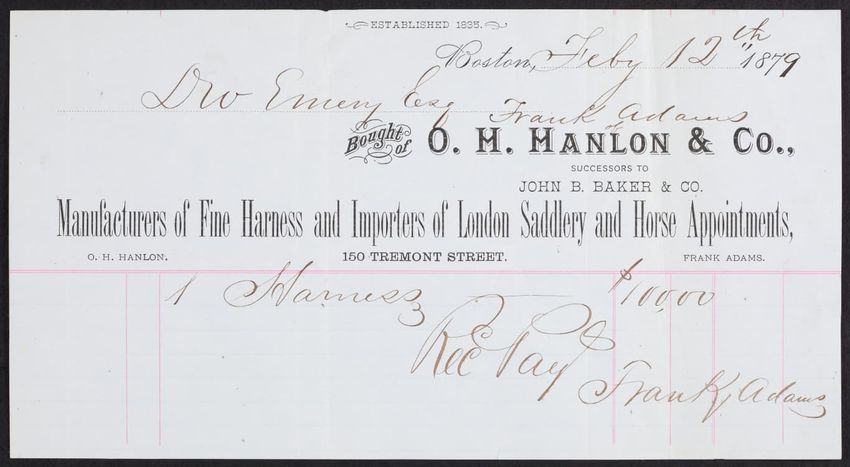 ESTABLISHED 1835.
Boston, Feby 12th 1879
Emery Esq
Frank Adams
Bought of O. H. HANLON & CO.,
SUCCESSORS TO
JOHN B. BAKER & CO.
Manufacturers of Fine Harness and Importers of London Saddlery and Horse Appointments,
O. H. HANLON. 150 TREMONT STREET. FRANK ADAMS.
1 Harness $100.00
Rec Pay
Frank Adams